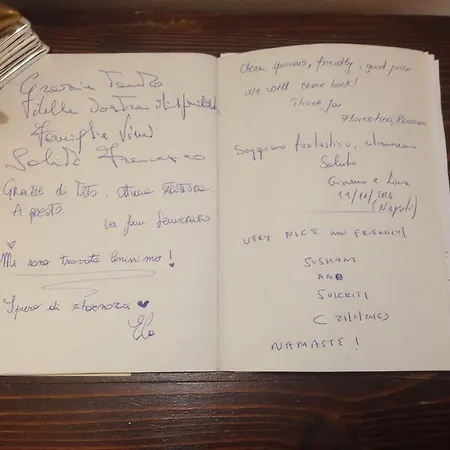 Grazie Tanto
della vostra
Famiglia
Saluti Francesco
Grazie di tutto. ottima struttura.
A presto.
La fam
Mi sono trovata benissimo!
Spero di ritornare
Ele
Clean, spacious, friendly, good price
We will come back!
Thank you
Florentina, Romania
Soggiorno fantastico,
Saluto
Luisa
11/2016
(Napoli)
VERY NICE AND FRIENDLY!
SUSHANT
AND
SUKRITI
( 21/11/2016)
NAMASTE!